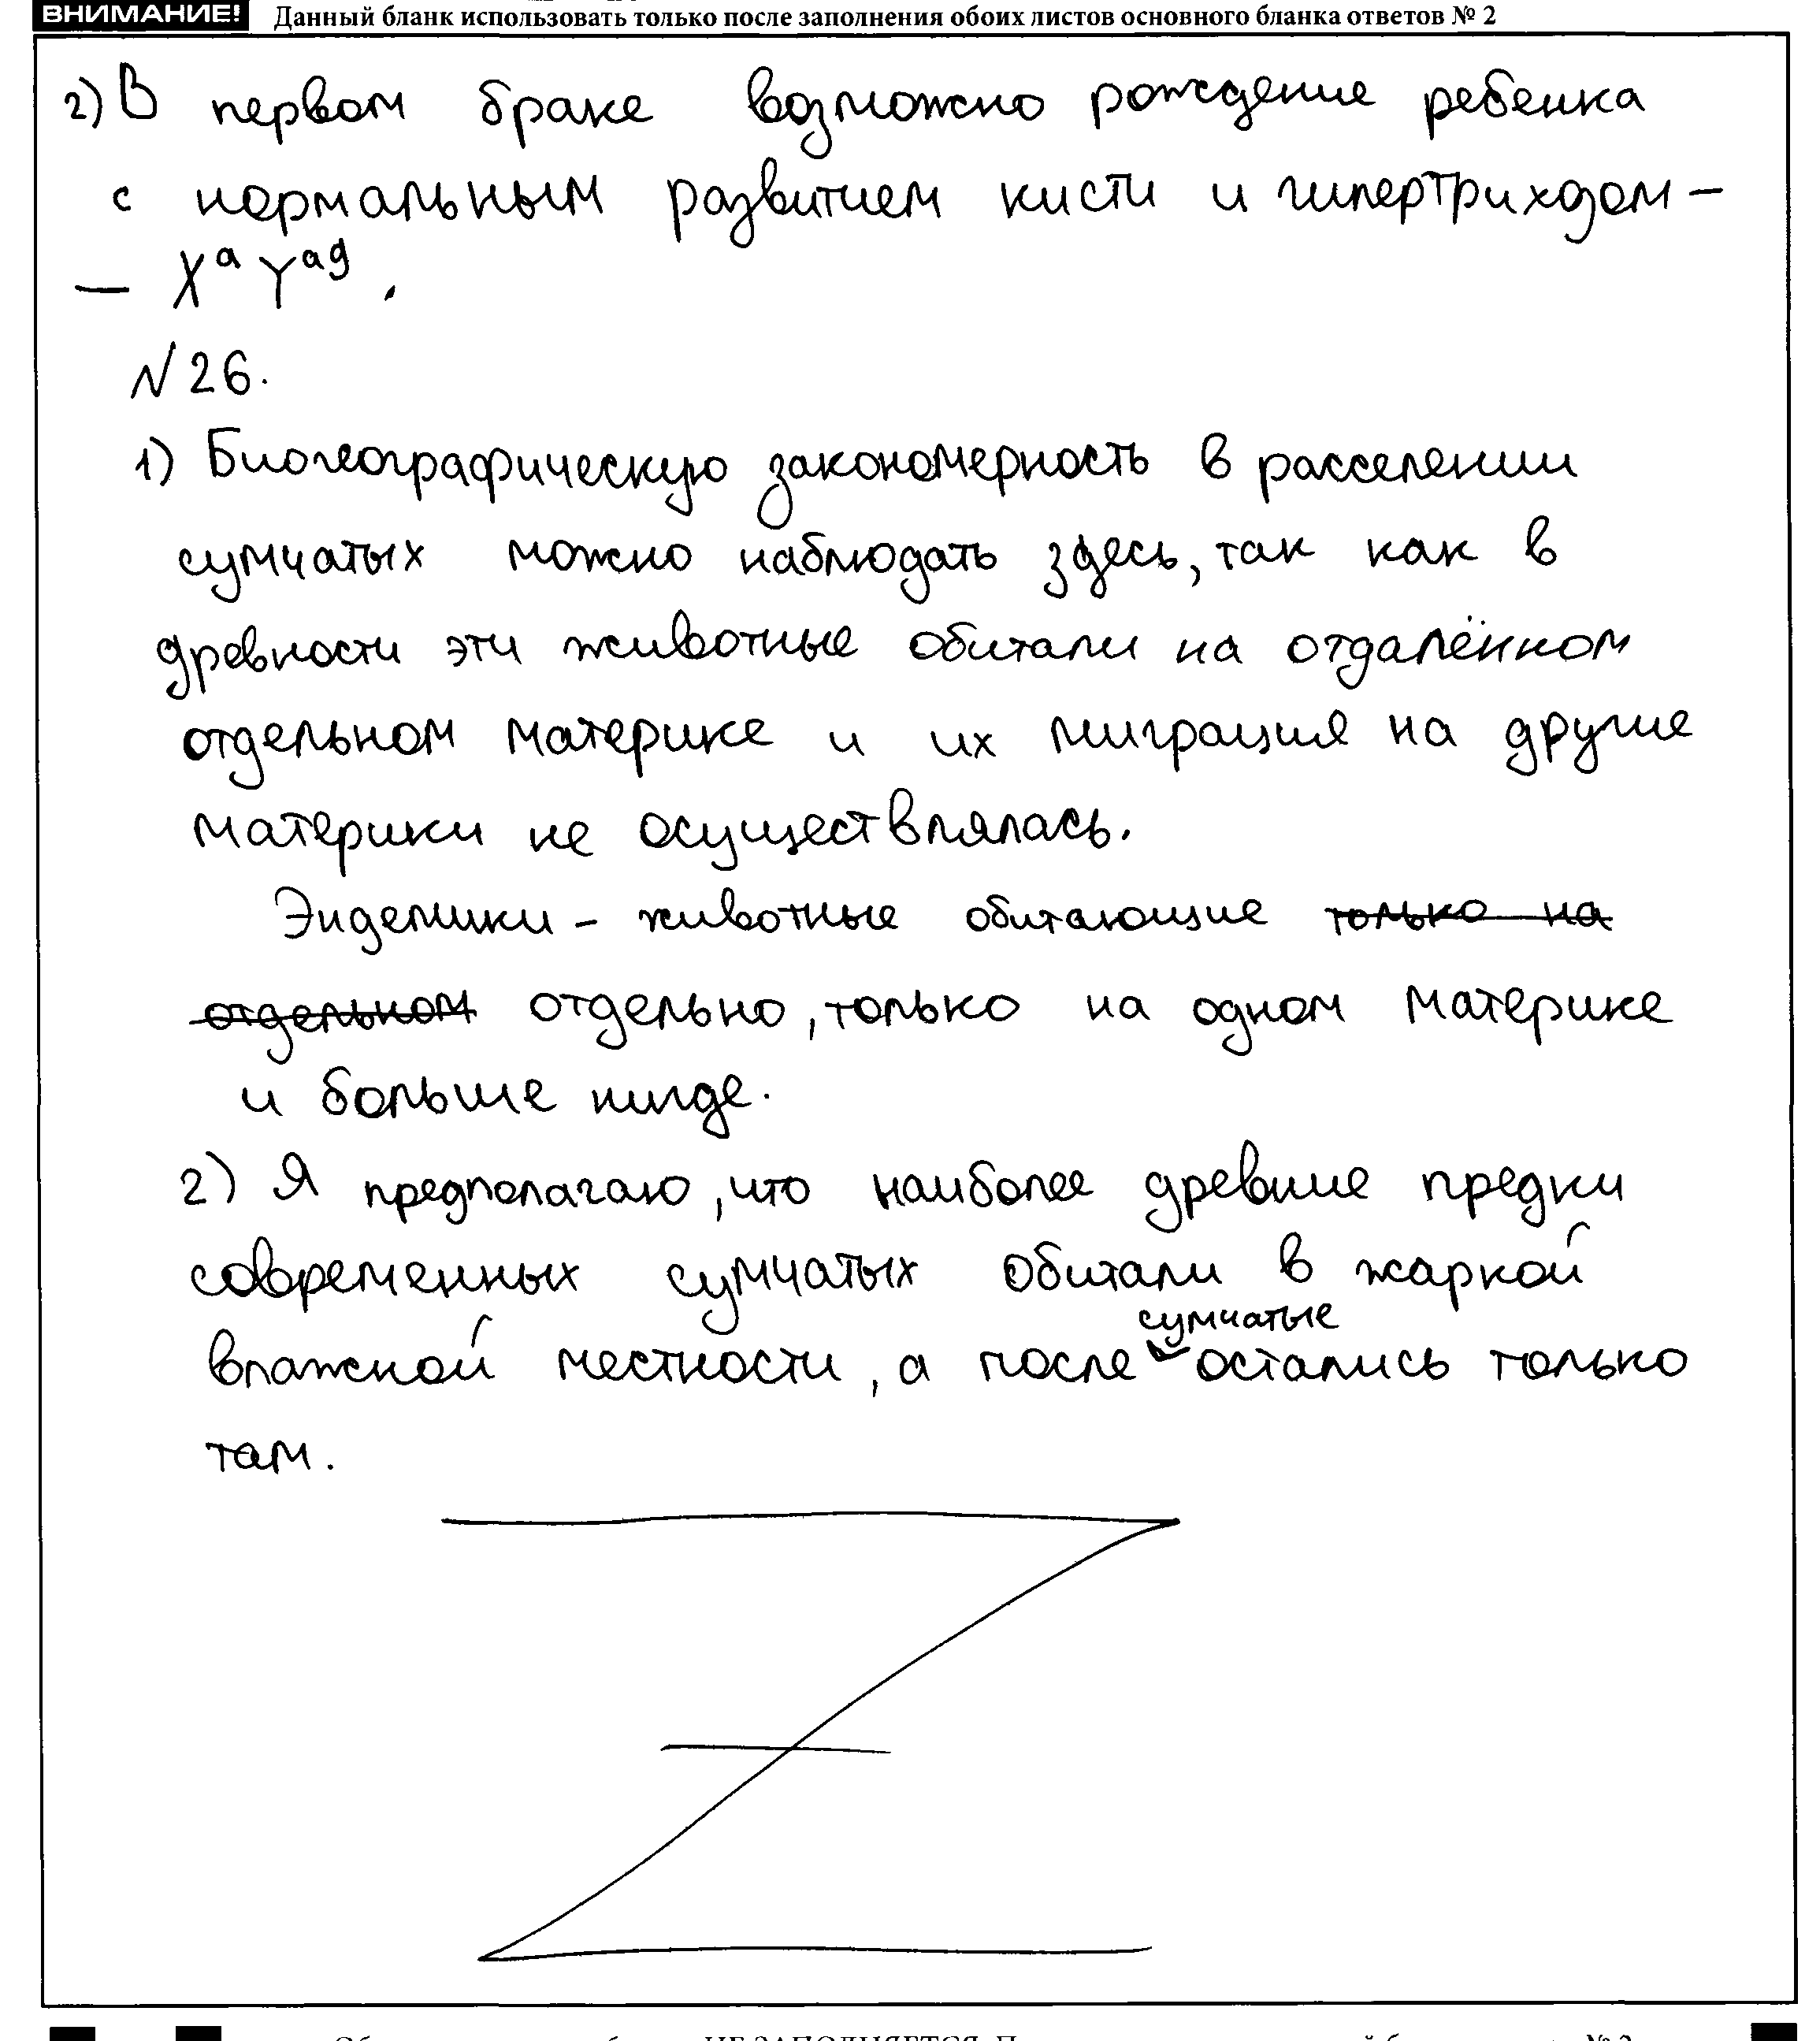 ВНИМАНИЕ! Данный бланк использовать только после заполнения обоих листов основного бланка ответов № 2
2) В первом браке возможно рождение ребенка
с нормальным развитием кисти и гипертриходом –
– XᵃYᵃᵍ.
N 26.
1) Биогеографическую закономерность в расселении
сумчатых можно наблюдать здесь, так как в
древности эти животные обитали на отдалённом
отдельном материке и их миграция на другие
материки не осуществлялась.
Эндемики – животные обитающие только на
отдельном отдельно, только на одном материке
и больше нигде.
2) Я предполагаю, что наиболее древние предки
современных сумчатых обитали в жаркой
влажной местности, а после сумчатые остались только
там.